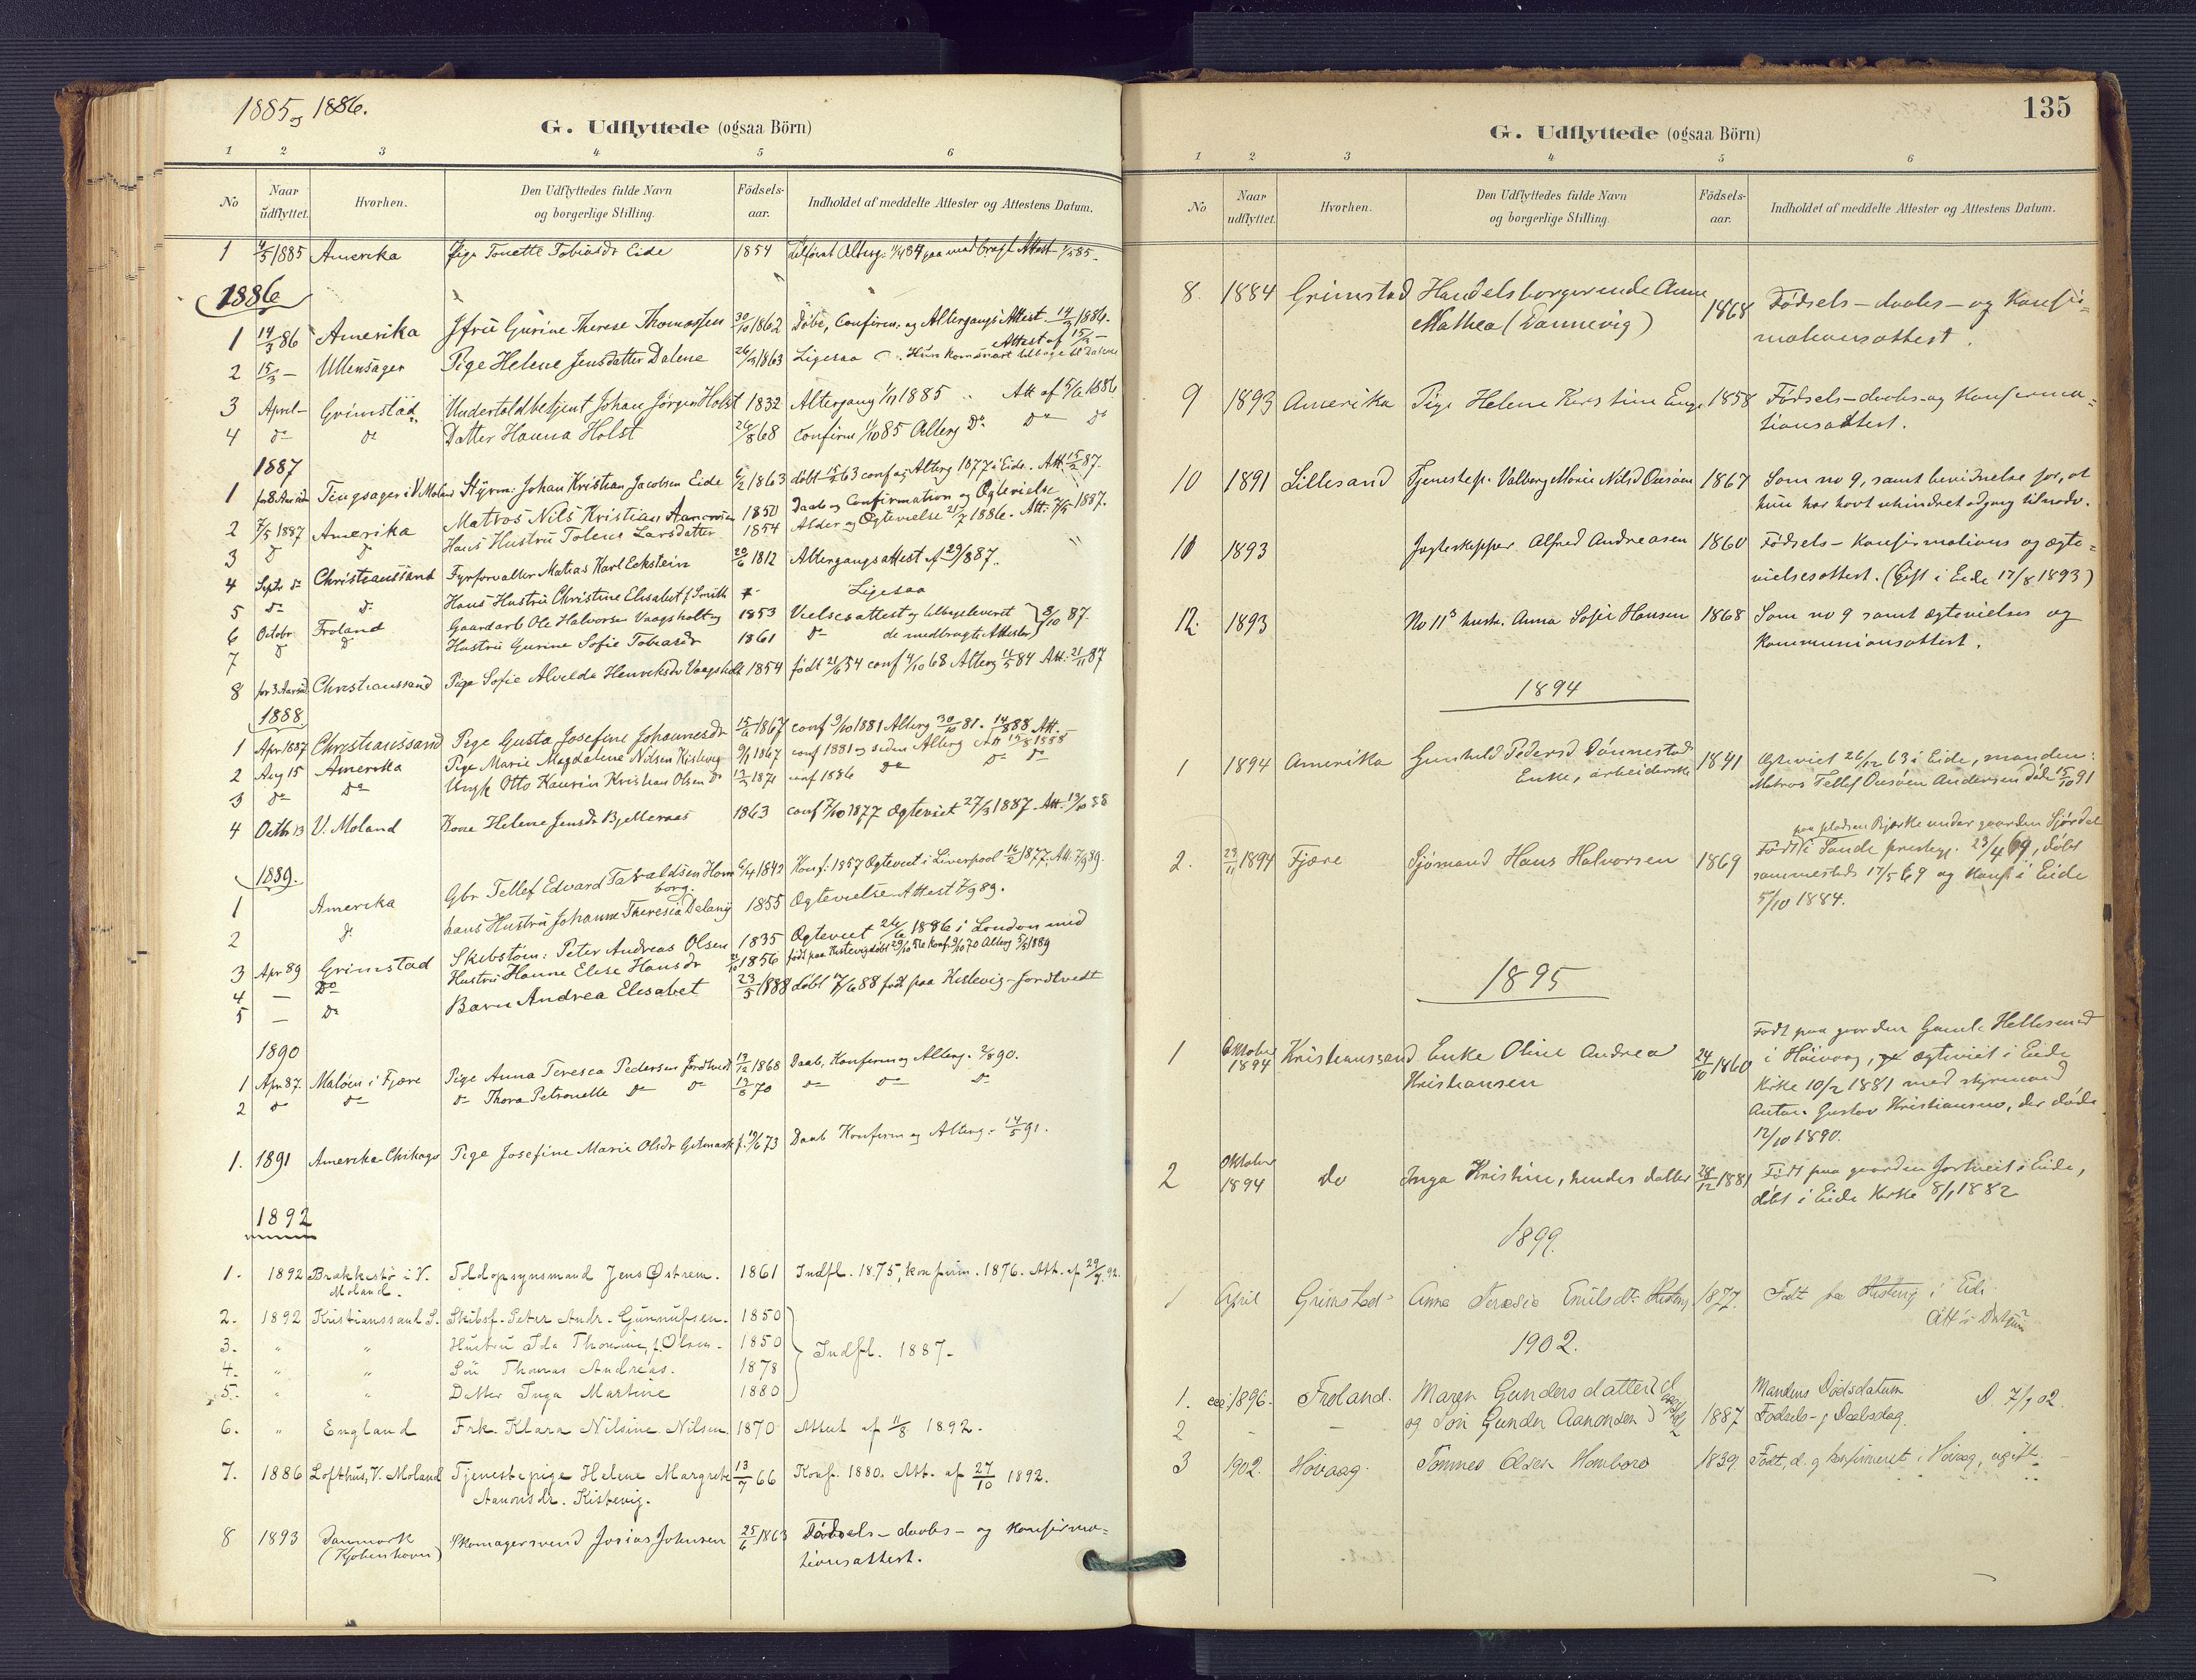 1885 og 1886.
G. Udflyttede (ogsaa Börn)
1 2 3 4 5 6
No
Naar udflyttet.
Hvorhen.
Den Udflyttedes fulde Navn og borgerlige Stilling.
Födsels-aar.
Indholdet af meddelte Attester og Attestens Datum.
1 4/5 1885 Amerika Pige Tonette Tobiasdr Eide 1854
1886
1 14/3 86 Amerika Jfru Gurine Therese Thomassen 30/10 1862 Døbe, Confirm. og Altergangs Attest 14/3 1886.
2 15/3 — Ullensager Pige Helene Jensdatter Dalene 26/3 1863 Ligesaa Attest af 15/3 —
3 April — Grimstad Undertoldbetjent Johan Jörgen Holst 1832 Altergang 1/11 1885 Att af 5/6 1886
4 do do Datter Hanna Holst 26/8 68 Confirm 1/10 85 Alterg do do do
1887
1 for 8 Aar siden Tingsager i V. Moland Styrm: Johan Kristian Jacobsen Eide 6/2 1863 döbt 15/2 63 conf og Alterg 1877 i Eide. Att. 15/2 87.
2 7/5 1887 Amerika Matros Nils Kristian Aanonsen 1850 Daab og Confirmation og Ægtevielse
3 do do Hans Hustru Tolene Larsdatter 1854 Alder og Ægtevielse 21/7 1886. Att. 7/5 1887.
4 Septr do Christianssand Fyrforvalter Matias Karl Eckstein 20/6 1812 Altergangsattest af 29/8 87.
5 do do Hans Hustru Christine Elisabet f. Smith Ligesaa
6 Octobr Froland Gaardarb Ole Halvorsen Vaagsholt og 1853 Vielsesattest og tilbageleveret
7 do do Hustru Gurine Sofie Tobiasdr 1861 do de medbragte Attester 3/10 87
8 for 3 Aar sid. Christianssand Pige Sofie Alvilde Henriksdr Vaagsholt 1854 født 21/6 54 conf 4/10 68 Alterg 11/5 84 Att: 21/11 87
1888.
1 Apr 1887 Christianssand Pige Gusta Josefine Johannesdr 15/6 1867 conf 9/10 1881 Alterg 30/10 81. 14/8 88 Att.
2 Aug 15 Amerika Pige Marie Magdalene Nilsen Kistevig 9/1 1867 conf 1881 og siden Alterg Att 14/8 1888
3 do do Ungk Otto Kaurin Kristian Olsen do 13/3 1871 conf 1886 do do do
4 Octbr 13 V. Moland Kone Helene Jensdr Bjelleraas 1863 conf 7/10 1877 Ægteviet 27/3 1887. Att. 13/10 88
1889.
1 Amerika Gbr Tellef Edvard Tavaldsen Homborg. 6/4 1842 Konf. 1857 Ægteviet i Liverpool 16/2 1877. Att. 7/9 89.
2 do hans Hustru Johanne Theresia Delany 1855 Ægtevielse Attest 7/9 89.
3 Apr 89 Grimstad Skibstöm: Peter Andreas Olsen 1835 Ægteviet 26/6 1886 i London med
4 — Do Hustru Hanne Elise Hansdr 1856 födt paa Kistevig döbt 29/10 56 Konf. 9/10 70 Alterg 5/5 1889
5 — do Barn Andrea Elisabet 23/5 1888 döbt 17/6 88 födt paa Kistevig-Fordtvedt
1890
1 Apr 87. Maløen i Fjære Pige Anna Teresea Pedersen Fordtvedt 13/12 1868 Daab, Konfirm og Alterg. 2/8 90.
2 do do do Thora Petronelle do do 13/6 70 do do do
1. 1891 Amerika Chikago Pige Josefine Marie Olsdr Gitmark f. 19/6 73 Daab Konfirm og Alterg. 14/5 91.
1892
1. 1892 Brækkestø i V. Moland. Toldopsynsmand Jens Østrem. 1861 Indfl. 1875, konfirm. 1876. Att. af 29/4 92.
2. 1892 Kristianssand S. Skibsf. Peter Andr. Gunnufsen. 1850
3. " " Hustru Ida Thomine f. Olsen. 1850 Indfl. 1887.
4. " " Sön Thomas Andreas. 1878
5. " " Datter Inga Martine 1880
6. " England Frk. Klara Nilsine Nilsen. 1870 Attest af 11/8 1892.
7. 1886 Lofthus, V. Moland Tjenestepige Helene Margrete Aanonsdr. Kistevig. 13/7 66 Konf. 1880. Att. af 27/10 1892.
8 1893 Danmark (Kjøbenhavn) Skomagersvend Josias Johnsen 25/6 1863 Fødsels- daabs- og konfirma=
tionsattest.
135
G. Udflyttede (ogsaa Börn)
1 2 3 4 5 6
No
Naar udflyttet.
Hvorhen.
Den Udflyttedes fulde Navn og borgerlige Stilling.
Födsels-aar.
Indholdet af meddelte Attester og Attestens Datum.
8. 1884 Grimstad Handelsborgerinde Anne Mathea (Dannevig) 1868 Fødsels- daabs- og Konfir=
mationsattest.
9 1893 Amerika Pige Helene Kirstine Enge 1858 Fødsels- daabs- og Konfirma=
tionsattest.
10 1891 Lillesand Tjenestep. Valborg Marie Nilsd Ousøen 1867 Som no 9, samt bevidnelse for, at
hun har havt uhindret adgang til nadv.
11 1893 Jagteskipper Alfred Andreasen 1860 Fødsels- Konfirmations og ægte=
vielsesattest. (Gift i Eide 17/8 1893)
12. 1893 No 11s hustr. Anna Sofie Hansen 1868 Som no 9 samt ægtevielses og
Kommunionsattest.
1894
1 1894 Amerika Gunhild Pedersd Dønnestad Enke, arbeiderske 1841 Ægteviet 26/12 63 i Eide, manden:
Matros Tellef Ousøen Andersen død 5/10 91
2. 23/11 1894 Fjære Sjømand Hans Halvorsen 1869
paa pladsen Bjerke under gaarden Sjørdal
Født i Sande prestegj. 23/4 69, døbt
sammesteds 17/5 69 og Konf i Eide
5/10 1884.
1895
1 Oktober 1894 Kristianssand Enke Oline Andrea Kristiansen 24/10 1860
Født paa gaarden Gamle Hellesund
i Høivaag, ægteviet i Eide
Kirke 10/2 1881 med styrmand
Anton Gustav Kristiansen, der døde
12/10 1890.
2 Oktober 1894 do Inga Kristine, hendes datter 28/12 1881 Født paa gaarden Fortveit i Eide,
døbt i Eide Kirke 8/1 1882
1899.
1 April Grimstad Anna Teresie Emilsdt. Kistevig 1877. Født paa Kistevig i Eide.
1902.
1. 1896. Froland. Maren Gundersdatter Mandens Dødsdatum D. 7/9 02.
2 - - og Søn Gunder Aanonsen 1887 Fødsels- og Daabsdag.
3 1902. Høvaag. Tomine Olsen Homboro 1839 Født, d. og konfirmeret i Høvaag, ugift.